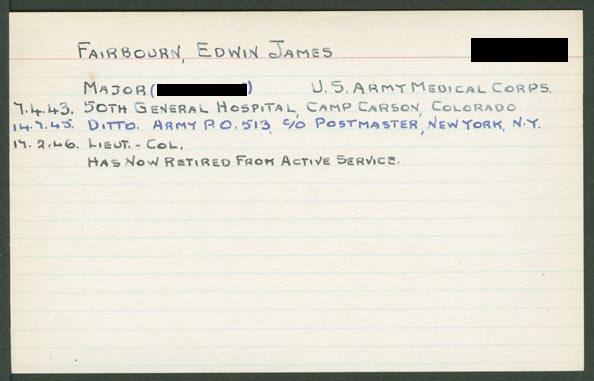 FAIRBOURN, EDWIN JAMES
MAJOR ( ) U.S. ARMY MEDICAL CORPS.
7.4.43. 50TH GENERAL HOSPITAL, CAMP CARSON, COLORADO
14.7.45. DITTO. ARMY P.O. 513, C/O POSTMASTER, NEW YORK, N.Y.
17.2.46. LIEUT.-COL.
HAS NOW RETIRED FROM ACTIVE SERVICE.